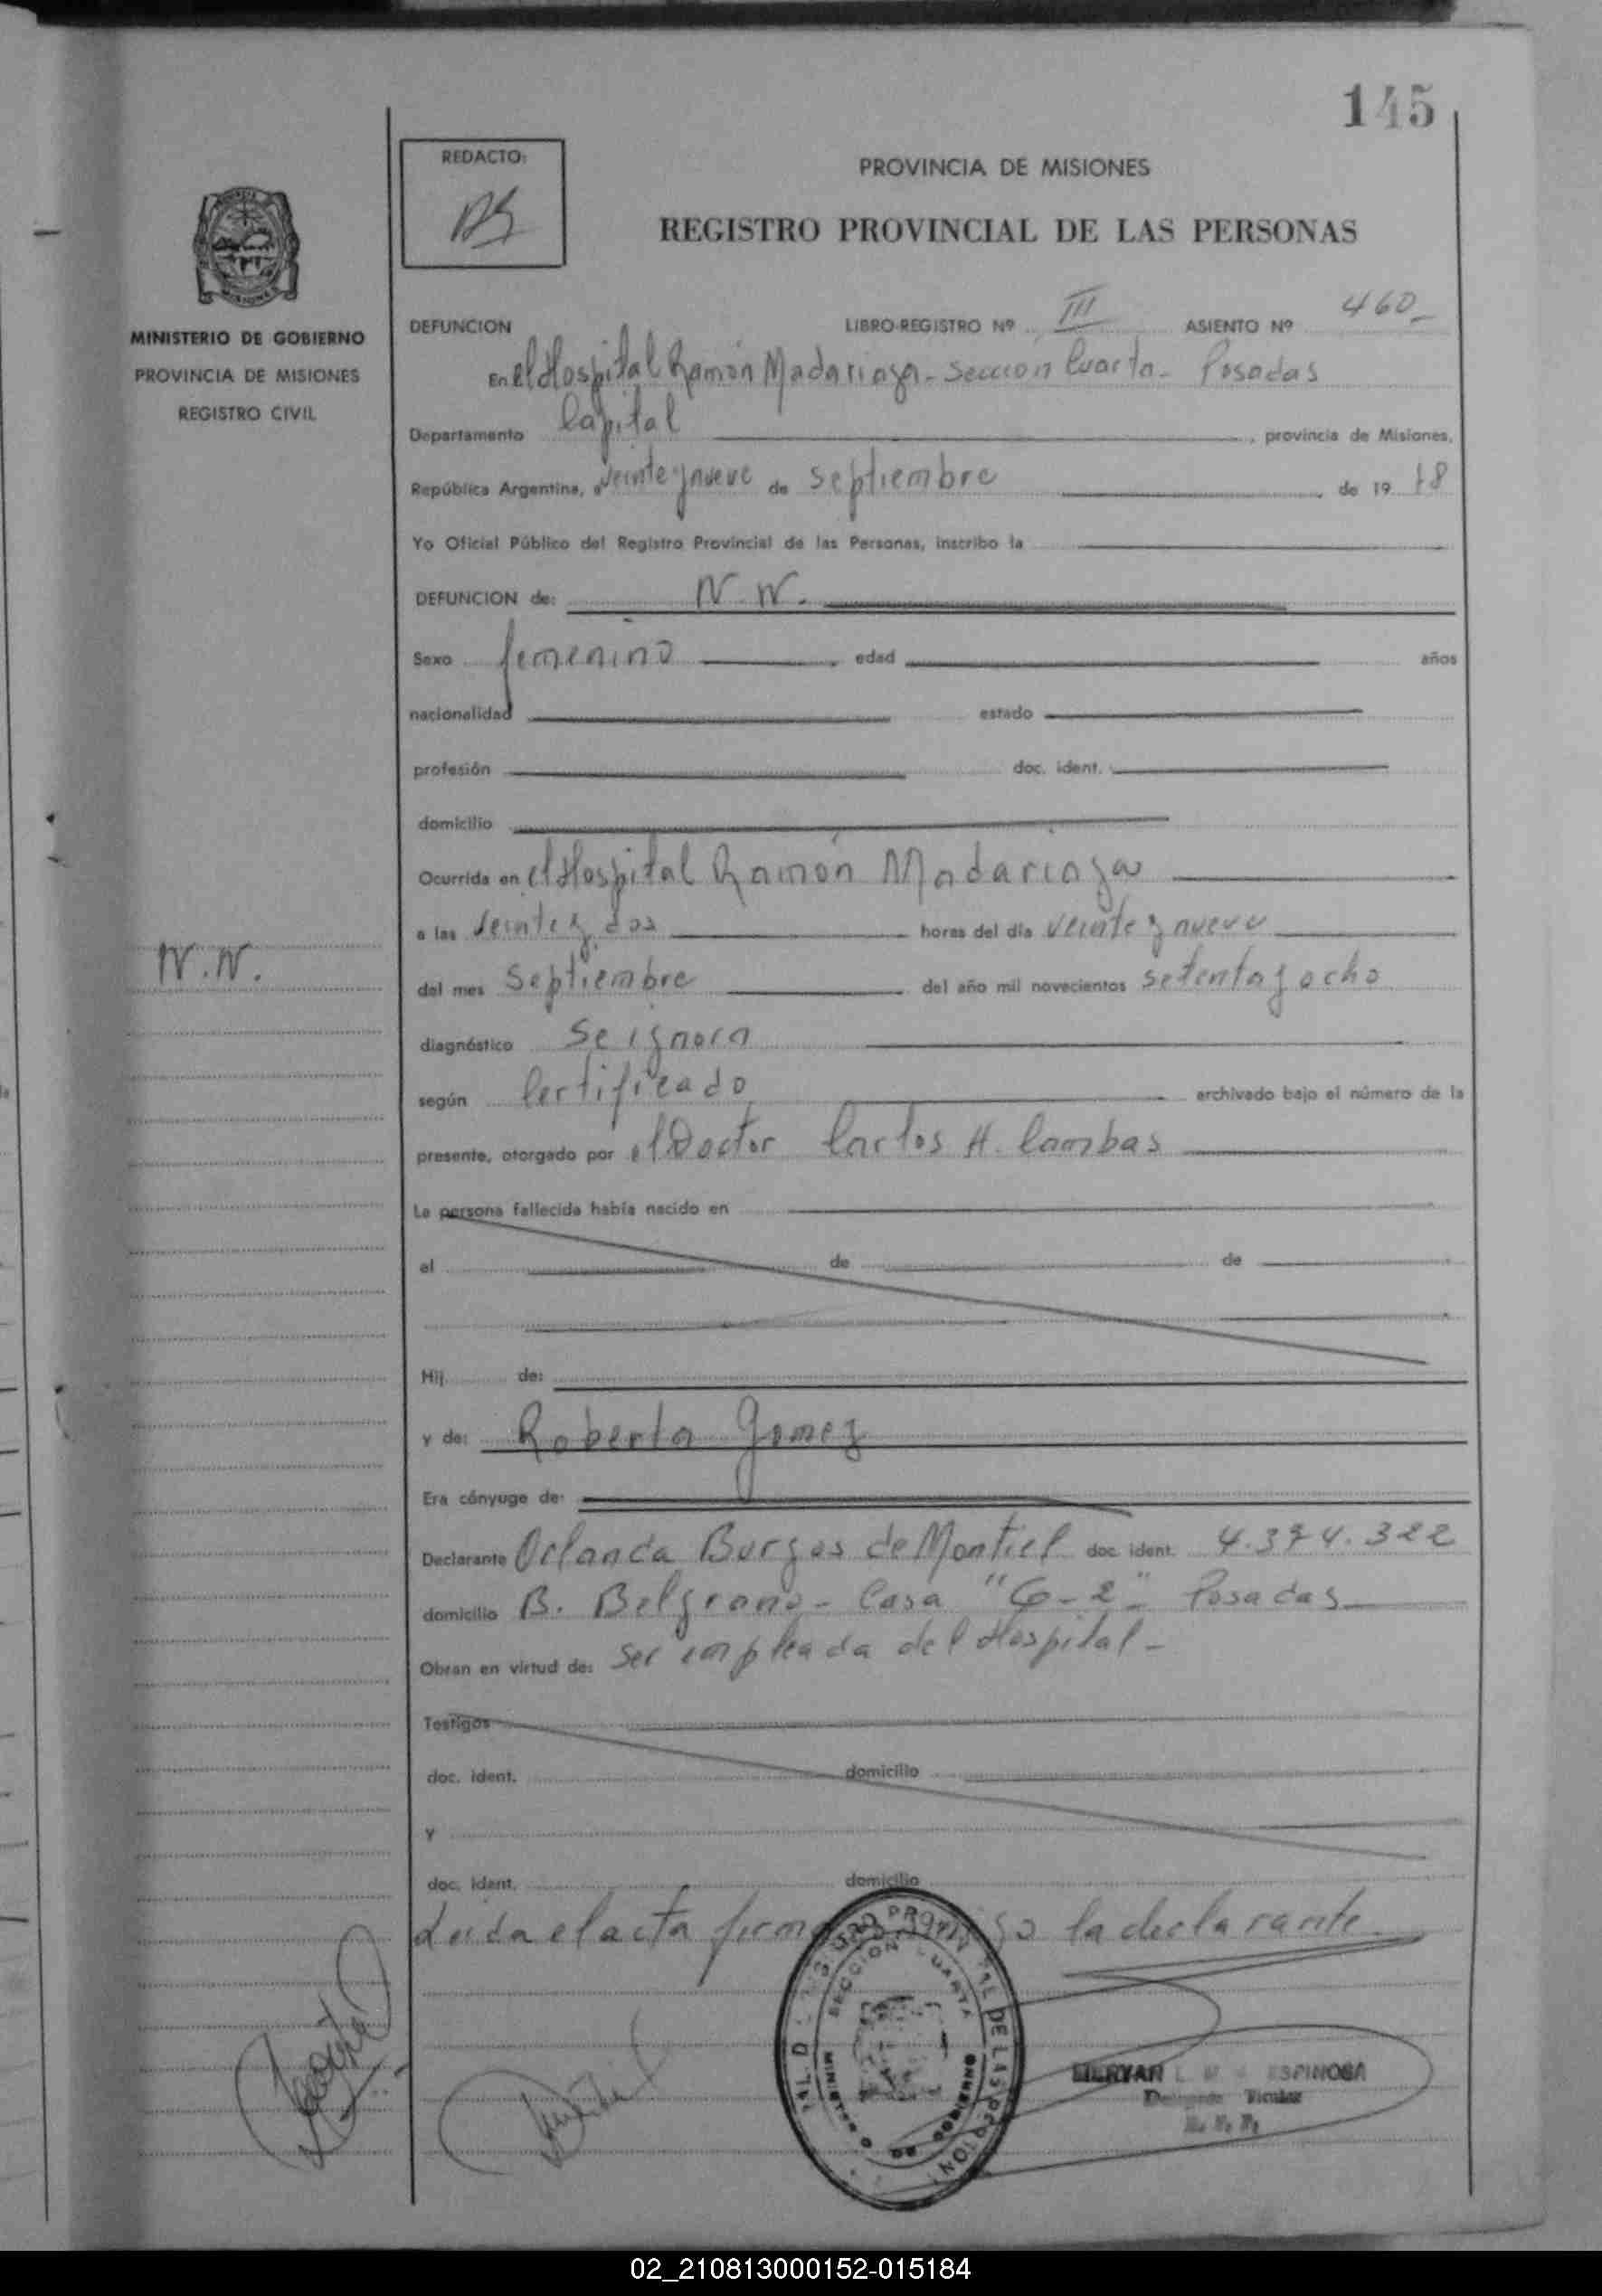 145
REDACTO:
PROVINCIA DE MISIONES
REGISTRO PROVINCIAL DE LAS PERSONAS
MINISTERIO DE GOBIERNO
PROVINCIA DE MISIONES
REGISTRO CIVIL
DEFUNCION LIBRO-REGISTRO Nº III ASIENTO Nº 460-
En el Hospital Ramón Madariaga - Sección Cuarta - Posadas
Departamento Capital, provincia de Misiones,
República Argentina, a veinte y nueve de septiembre de 19 78
Yo Oficial Público del Registro Provincial de las Personas, inscribo la
DEFUNCION de: N. N.
Sexo femenino edad años
nacionalidad estado
profesión doc. ident.
domicilio
Ocurrida en el Hospital Ramón Madariaga
a las veinte y dos horas del día veinte y nueve
N.N.
del mes Septiembre del año mil novecientos setenta y ocho
diagnóstico Se ignora
según Certificado archivado bajo el número de la
presente, otorgado por el Doctor Carlos H. Cambas
La persona fallecida había nacido en
el de de
Hij de:
y de: Roberta Gomez
Era cónyuge de:
Declarante Orlanda Burgos de Montiel doc. ident. 4.374.322
domicilio B. Belgrano - Casa "G-2" - Posadas
Obran en virtud de: Ser empleada del Hospital -
Testigos
doc. ident. domicilio
Y
doc. ident. domicilio
Leida el acta la declarante
SECCION CUARTA
DE LAS PERSONAS
MINISTERIO DE GOBIERNO
MERYAN ESPINOSA
Titular